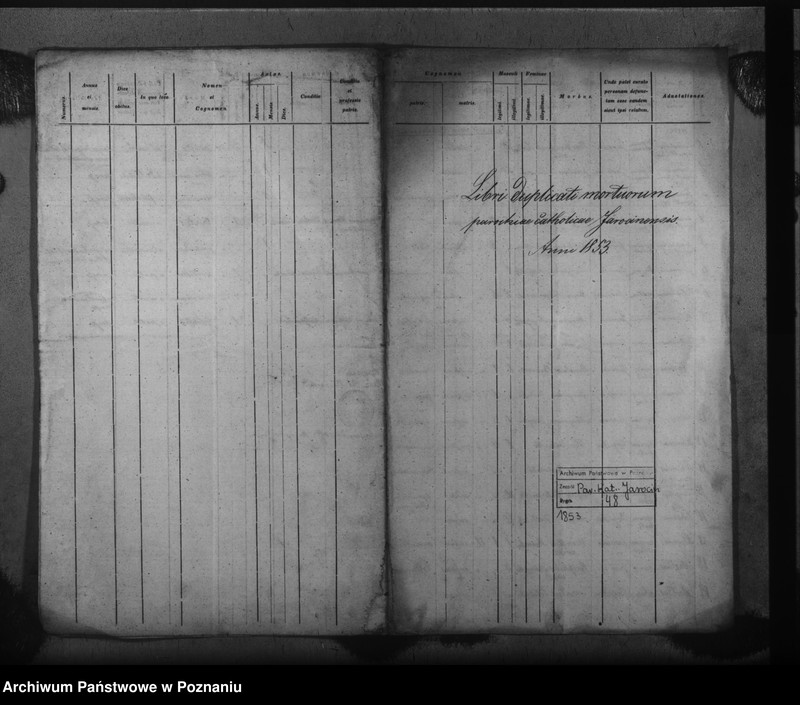 Numerus
Annus
et
mensis.
Dies
obitus.
In quo loco
Nomen
et
Cognomen.
Aetas.
Annus.
Mensis.
Dies.
Conditio
Conditio
et
professio
patris.
Cognomen
patris.
matris.
Masculi
legitimi.
illegitimi.
Feminae
legitimae.
illegitimae.
Morbus
Unde patet narata
personam defunc-
tam esse eandem
sicut ipsi relatum.
Adnotationes
Libri duplicati mortuorum
parochiae catholicae Jarocinensis.
Anni 1853.
Archiwum Państwowe w
Zespół Par. kat. Jarocin
Sygn. 48
1853
Archiwum Państwowe w Poznaniu